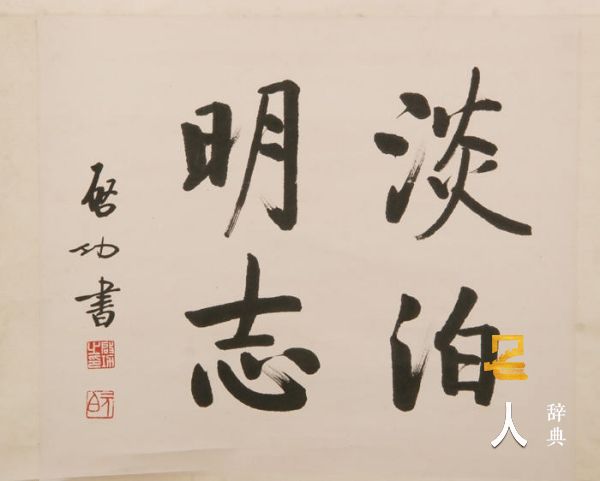 淡泊
明志
启功书
人
辞典